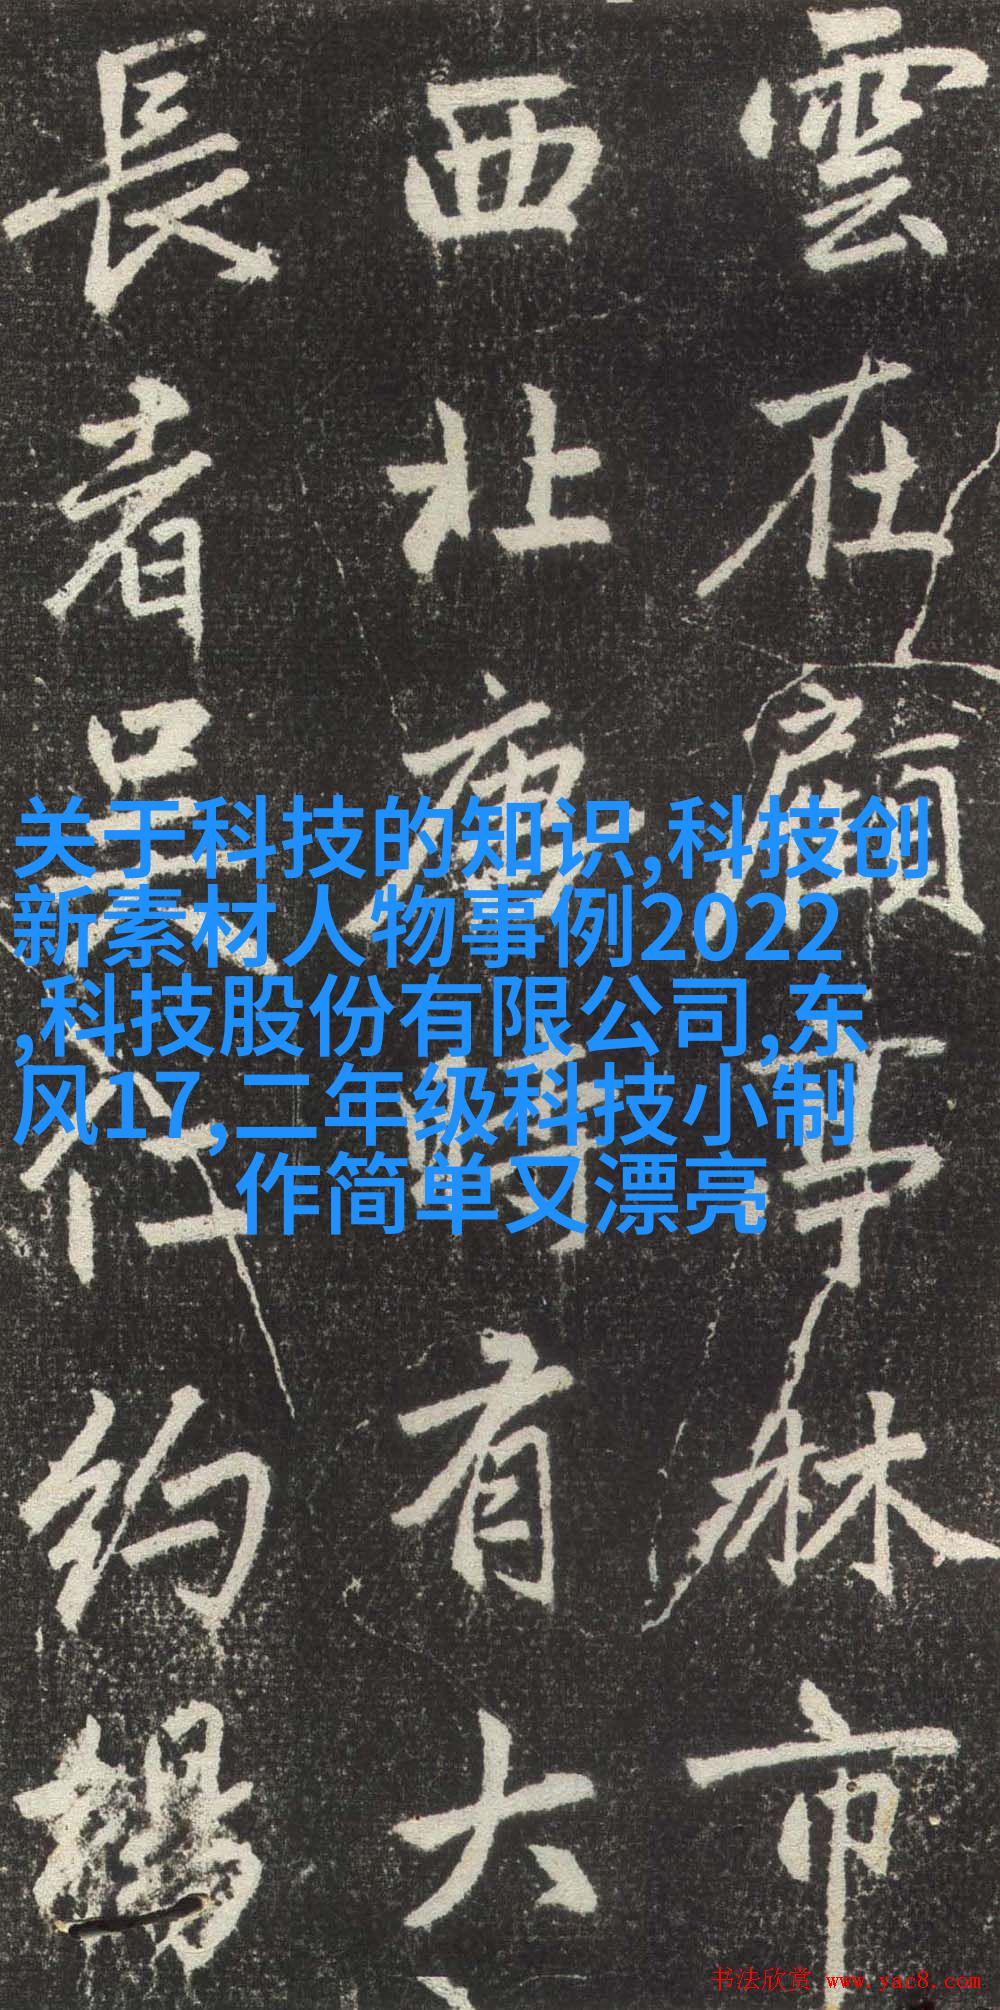 雲在顧亭林市
西北唐時有大
長者吳约
关于科技的知识,科技创
新素材人物事例2022
,科技股份有限公司,东
风17,二年级科技小制
作简单又漂亮
书法欣赏 www.yac8.com